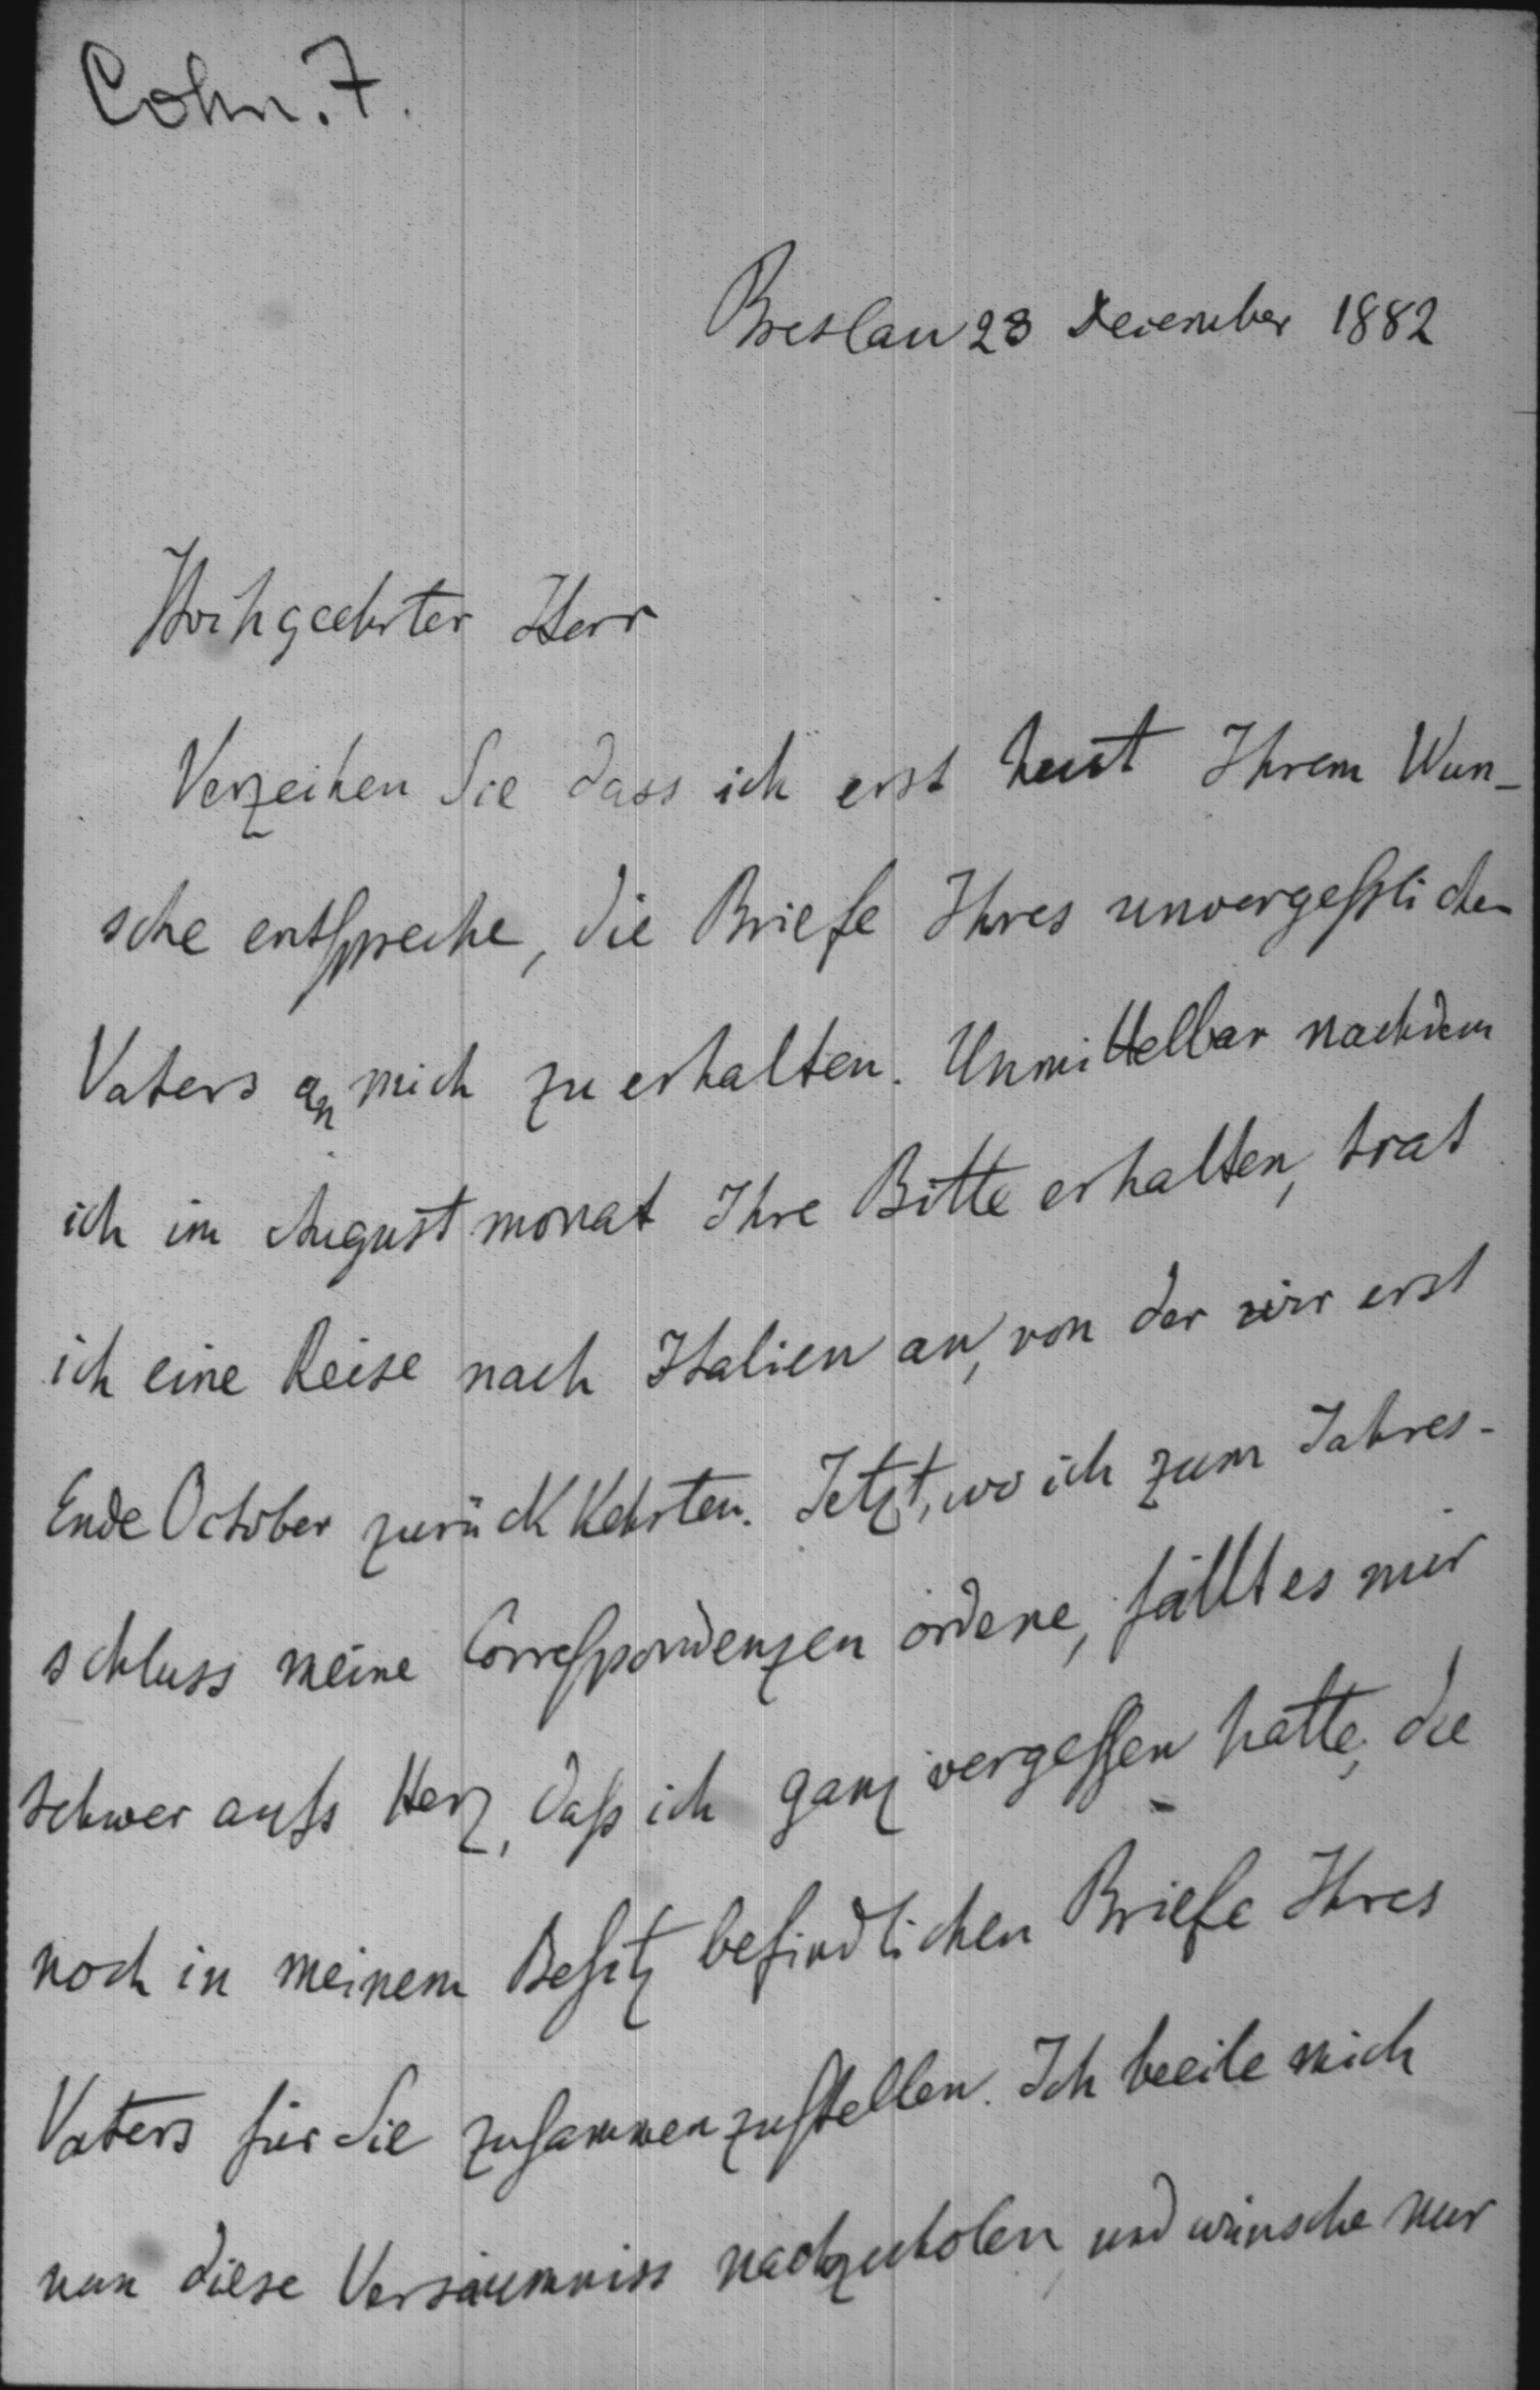 Cohn. F.
Breslau 28 December 1882
Hochgeehrter Herr
Verzeihen Sie dass ich erst heut Ihrem Wun-
sche entspreche, die Briefe Ihres unvergesslichen
Vaters an mich zu erhalten. Unmittelbar nachdem
ich im August monat Ihre Bitte erhalten, trat
ich eine Reise nach Italien an, von der wir erst
Ende October zurückkehrten. Jetzt, wo ich zum Jahres-
schluss meine Correspondenzen ordene, fällt es mir
schwer aufs Herz, daß ich ganz vergessen hatte, die
noch in meinem Besitz befindlichen Briefe Ihres
Vaters für Sie zusammenzustellen. Ich beeile mich
nun diese Versäumniss nachzuholen und wünsche nur